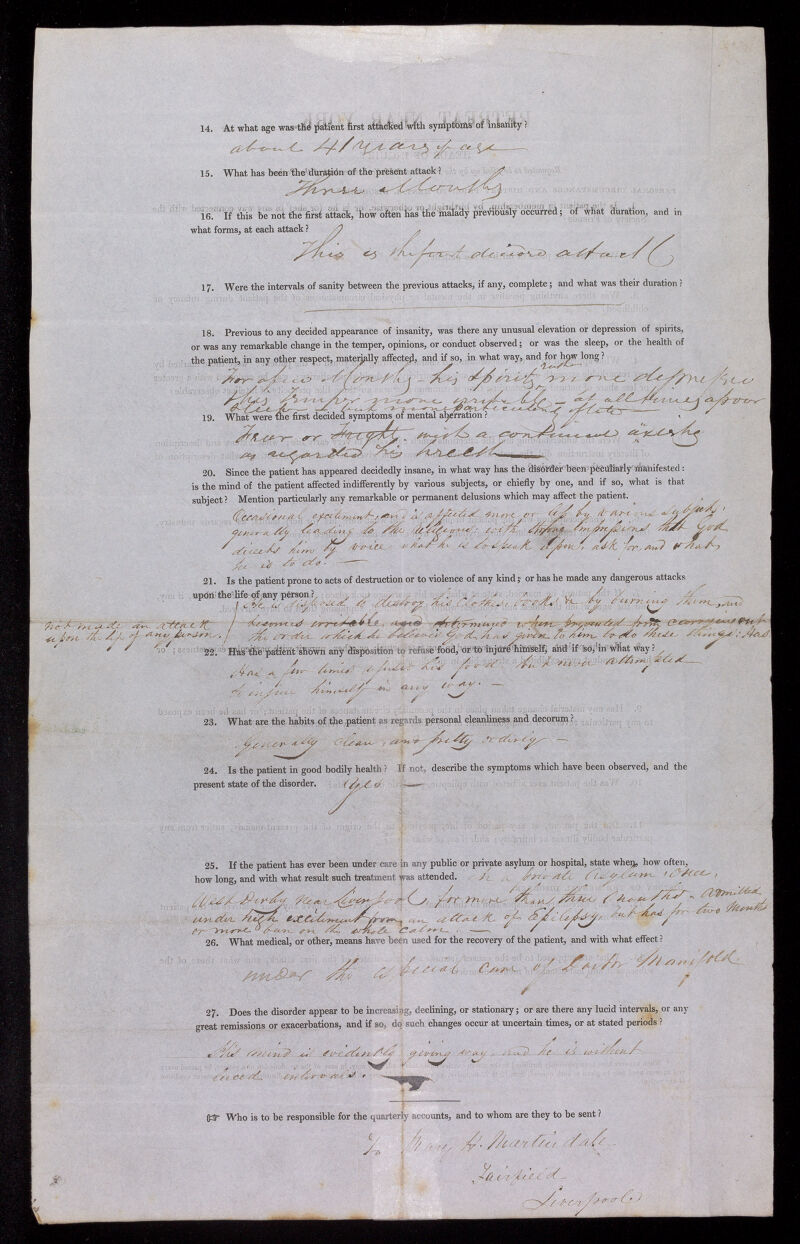 14. At what age was the patient first attacked with symptoms of insanity?
about 41 years of age
15. What has been the duration of the present attack?
Three Months
16. If this be not the first attack, how often has the malady previously occurred; of what duration, and in
what forms, at each attack?
This is the first decided attack
17. Were the intervals of sanity between the previous attacks, if any, complete; and what was their duration?
18. Previous to any decided appearance of insanity, was there any unusual elevation or depression of spirits,
or was any remarkable change in the temper, opinions, or conduct observed; or was the sleep, or the health of
the patient, in any other respect, materially affected, and if so, in what way, and for how long?
For a few Months his spirits rather more depressed
his temper more irritable – at all times a poor
but more particularly of late
19. What were the first decided symptoms of mental aberration?
Fear or Fright with a continued
as regarded his
20. Since the patient has appeared decidedly insane, in what way has the disorder been peculiarly manifested:
is the mind of the patient affected indifferently by various subjects, or chiefly by one, and if so, what is that
subject? Mention particularly any remarkable or permanent delusions which may affect the patient.
Occasional excitement, and is affected more or less by various subjects,
generally leading to the religious, with strong impressions that God
directs him by voice what he is to speak upon, ask for, and what
he is to do. —
21. Is the patient prone to acts of destruction or to violence of any kind; or has he made any dangerous attacks
upon the life of any person?
He is disposed to destroy his clothes, books &c by burning them, and
becomes irritable, and determined when prevented from carrying out
the order which he believes God has given to him to do these things: Has
not made an attack
upon the life of any person.
22. Has the patient shown any disposition to refuse food, or to injure himself, and if so, in what way?
Has a few times refused his food but never attempted
to injure himself in any way. —
23. What are the habits of the patient as regards personal cleanliness and decorum?
Generally clean, and pretty orderly —
24. Is the patient in good bodily health? If not, describe the symptoms which have been observed, and the
present state of the disorder. Yes —
25. If the patient has ever been under care in any public or private asylum or hospital, state when, how often,
how long, and with what result such treatment was attended. In a private asylum, once,
West Derby near Liverpool, for more than three months. Admitted
under high excitement from an attack of Epilepsy, but has for two months
or more been on the whole calm. —
26. What medical, or other, means have been used for the recovery of the patient, and with what effect?
under the especial care of Doctor Manifold
27. Does the disorder appear to be increasing, declining, or stationary; or are there any lucid intervals, or any
great remissions or exacerbations, and if so, do such changes occur at uncertain times, or at stated periods?
His mind is evidently giving way and he is without
lucid intervals.
☞ Who is to be responsible for the quarterly accounts, and to whom are they to be sent?
To Mary H. Martindale
Fairfield
Liverpool